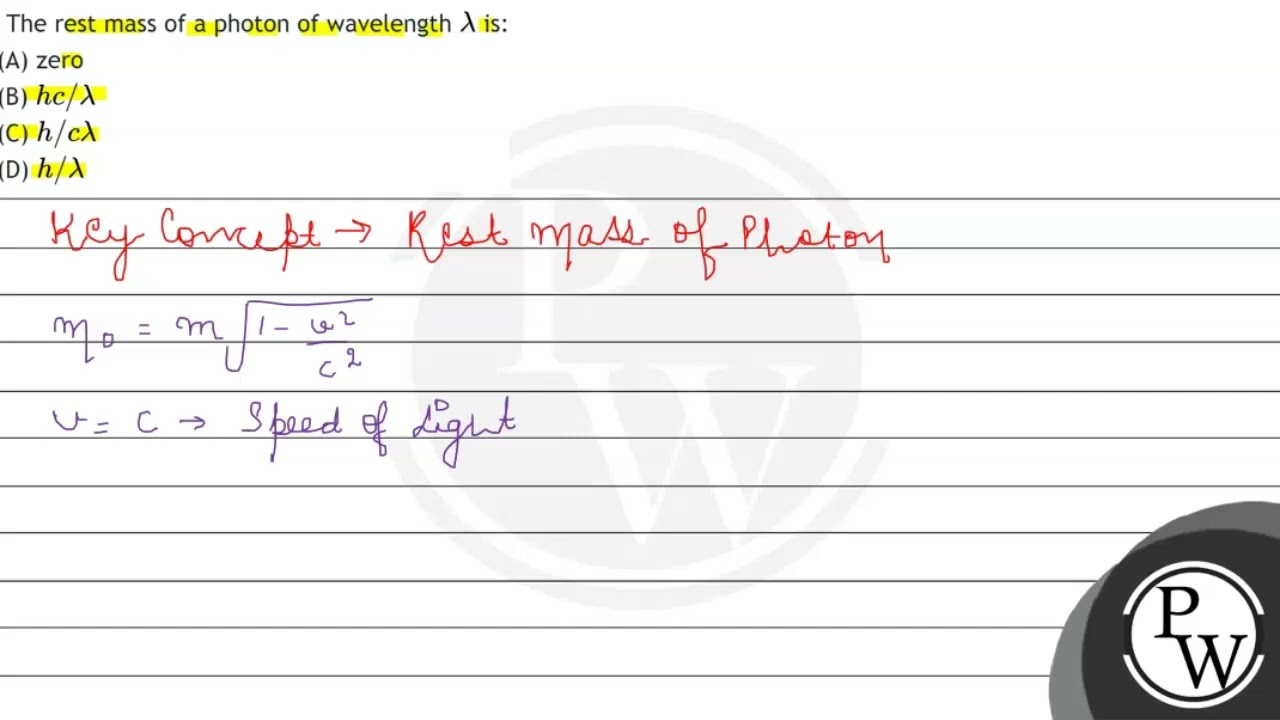 The rest mass of a photon of wavelength λ is:
(A) zero
(B) hc/λ
(C) h/cλ
(D) h/λ
Key Concept → Rest mass of Photon
m₀ = m√(1 - v²/c²)
v = c → Speed of Light
PW
PW